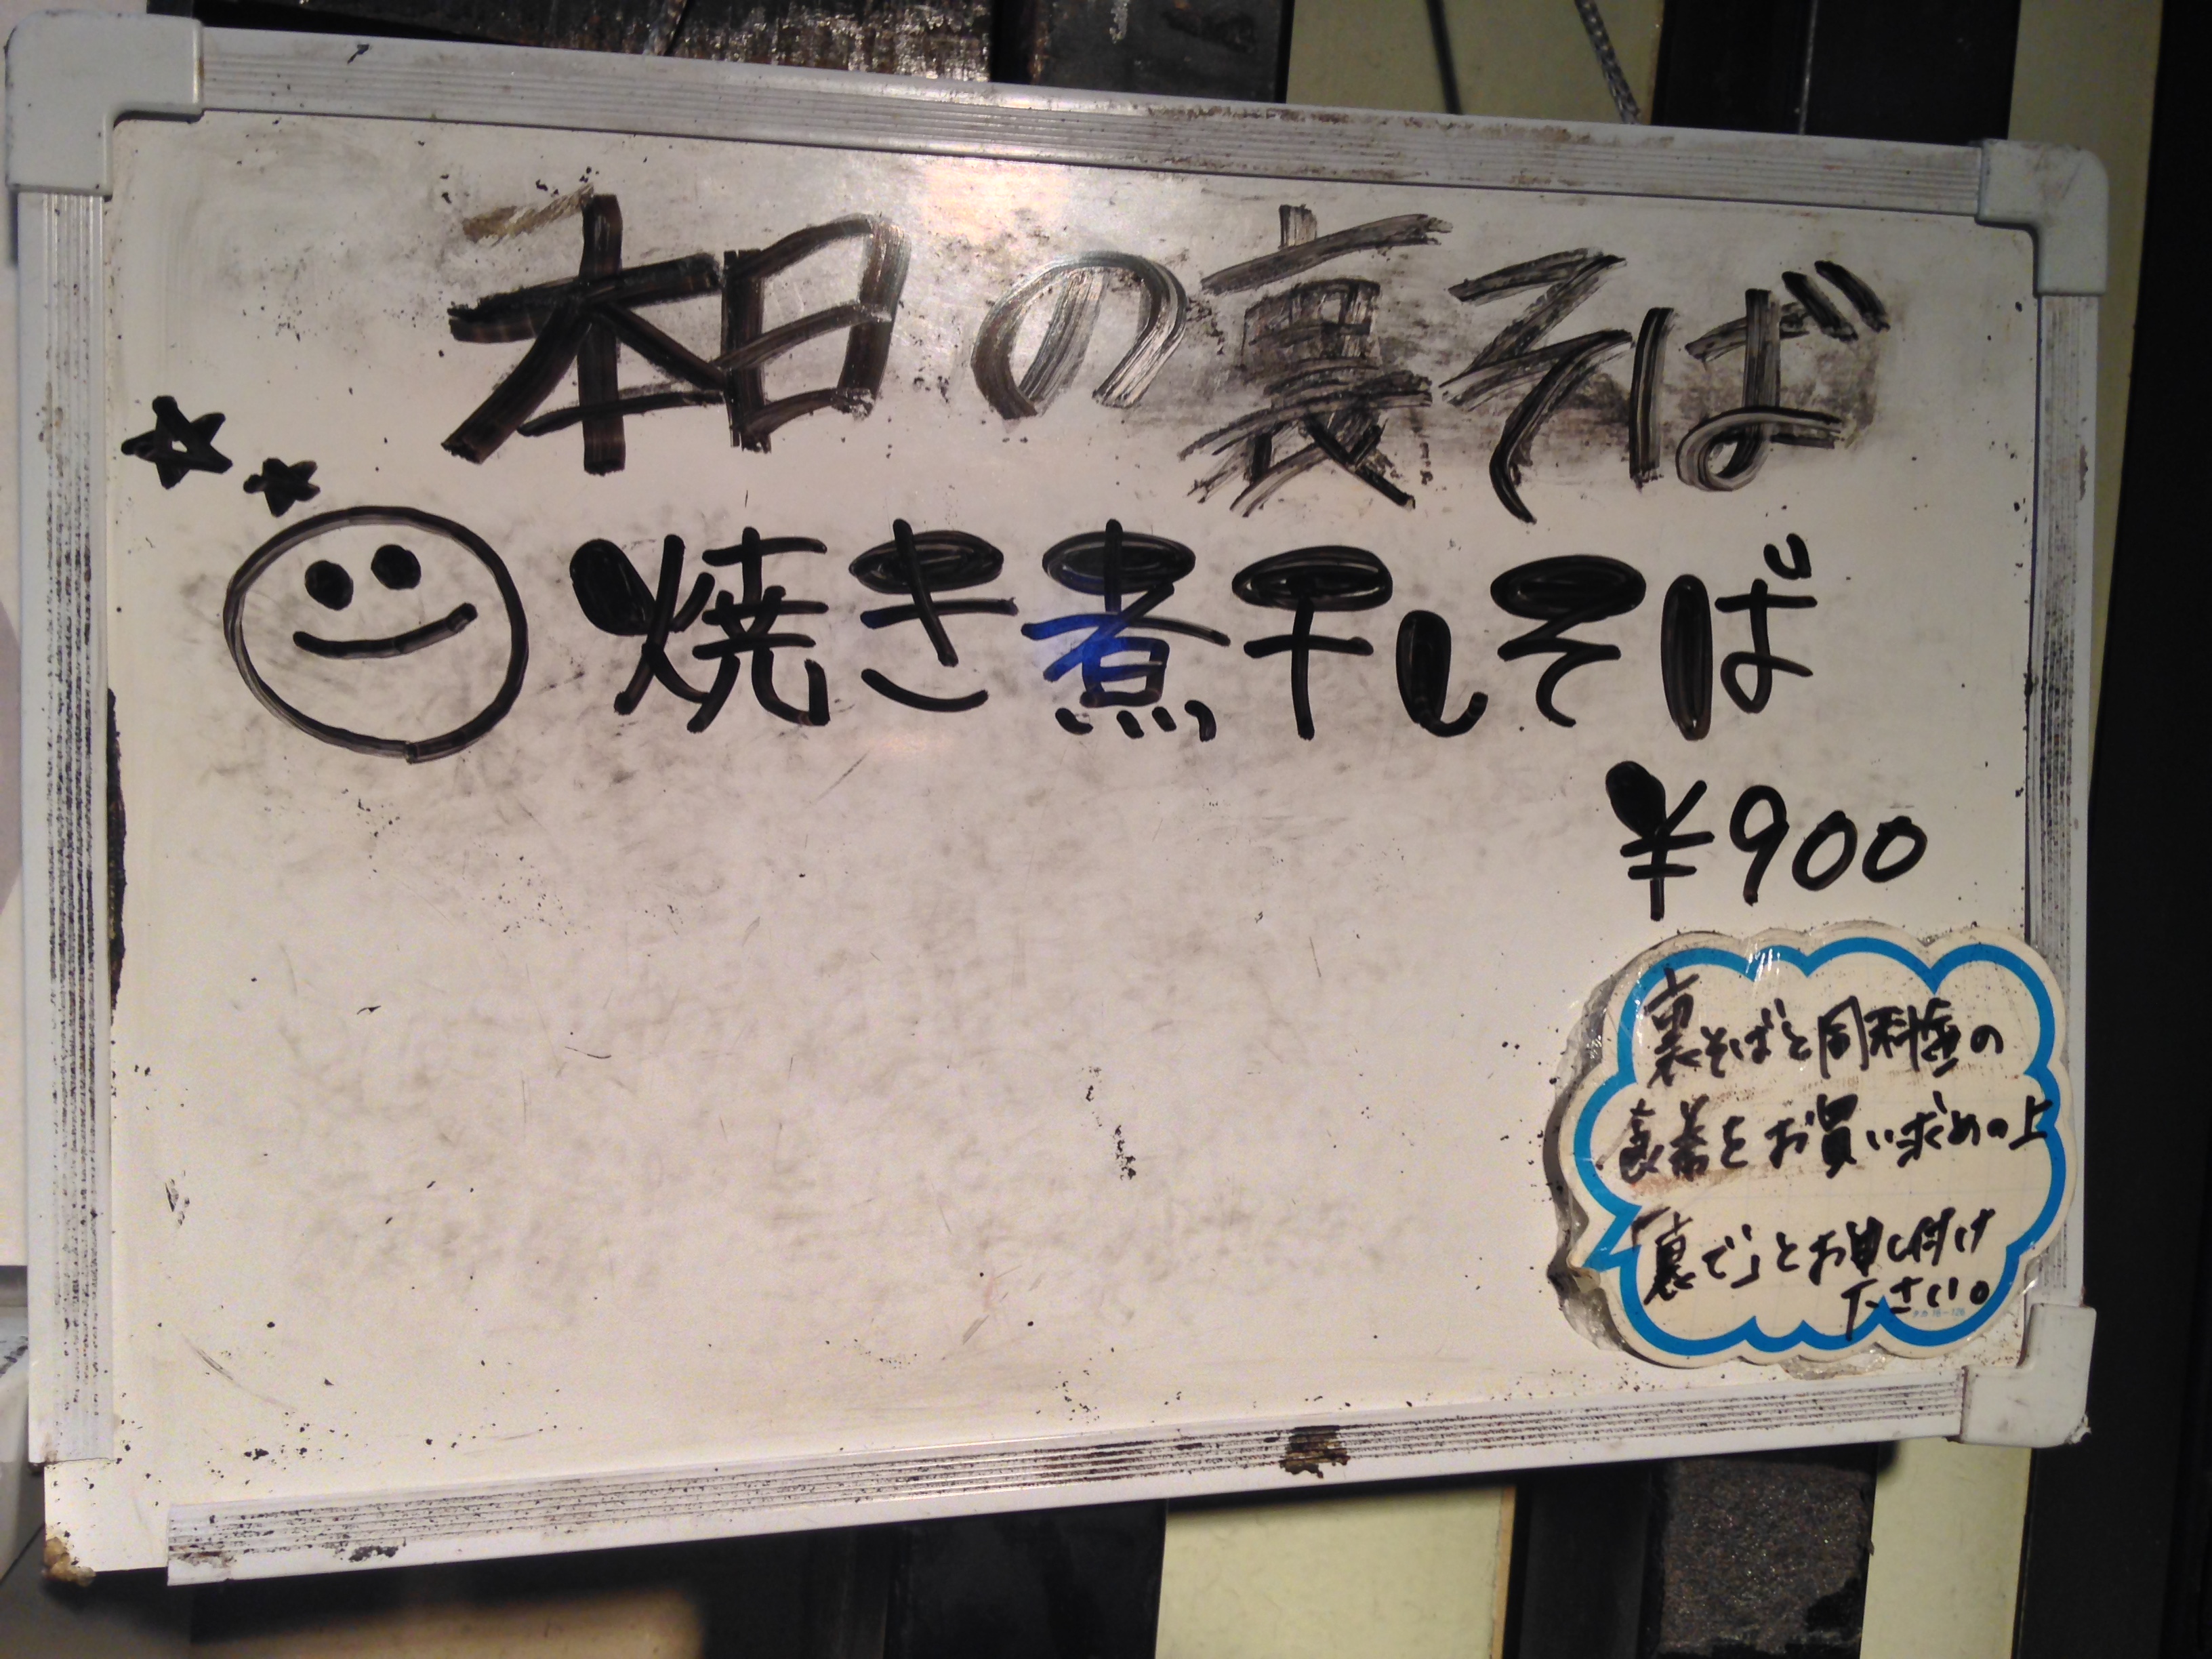 本日の裏そば
焼き煮干しそば
¥900
裏そばと同料金の
食券をお買い求めの上
「裏で」とお申し付け
下さい。